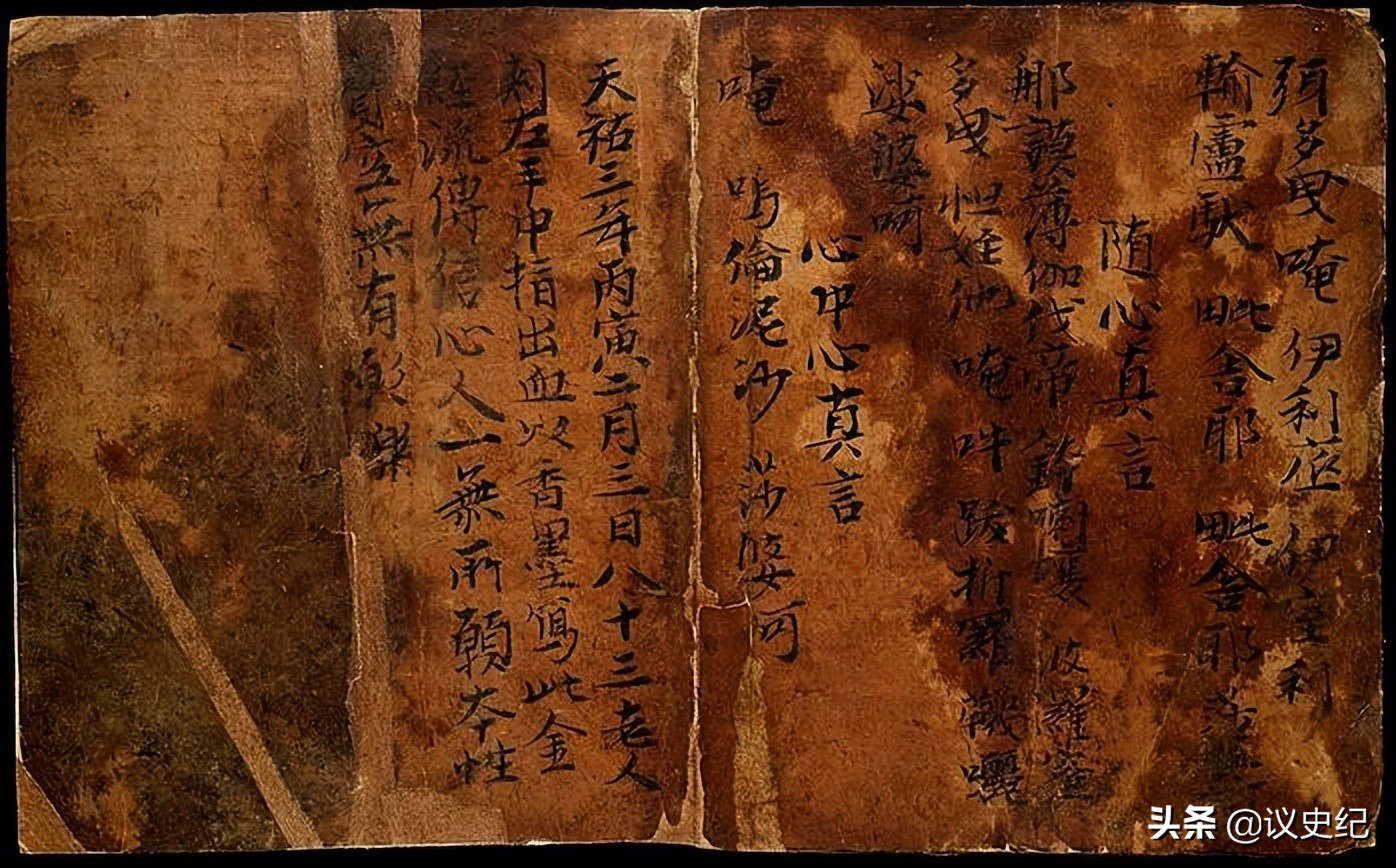 須多曳 唵 伊利底 伊室利
輸盧馱 毗舍耶 毗舍耶 莎婆
随心真言
那謨薄伽伐帝 波羅蜜
多曳 怛姪他 唵 吽 跋折羅
莎婆訶
心中心真言
唵 嗚倫泥沙 莎婆訶
天祐三年丙寅二月三日八十三老人
刺左手中指出血以香墨寫此金
經流傳信心人一無所願本性
實空無有願樂
头条 @议史纪